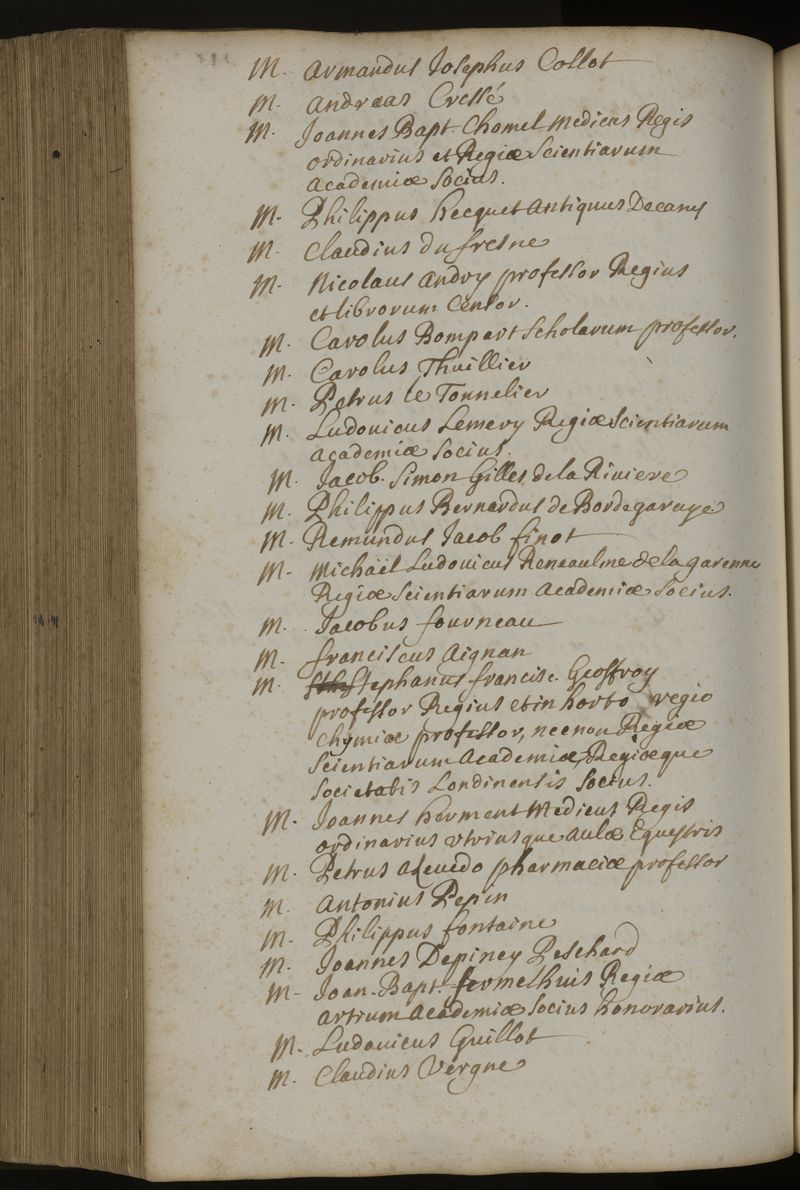 M. Armandus Josephus Collot
M. Andraas Cressé
M. Joannes Bapt. Chomel Medicus Regis
ordinarius et Regiæ Scientiarum
Academiæ Socius.
M. Philippus hecquet Antiquus Decanus
M. Claudius du fresne
M. Nicolaus Andry professor Regius
et librorum Censor.
M. Carolus Bompart Scholarum professor.
M. Carolus Thuillier
M. Petrus le Tonnelier
M. Ludovicus Lemery Regiæ Scientiarum
Academiæ Socius.
M. Jacob. Simon Gilles de la Riviere
M. Philippus Bernardus de Bordegaraye
M. Remundus Jacob finot
M. Michaël Ludovicus Reneaulme de la garenne
Regiæ Scientiarum Academiæ Socius.
M. Jacobus fourneau
M. franciscus Aignan
M. Stephanus francisc. Geoffroy
professor Regius et in horto regio
Chymiæ professor, necnon Regiæ
Scientiarum Academiæ, Regiæque
Societatis Londinensis Socius.
M. Joannes herment Medicus Regis
ordinarius utriusque aulæ Equestris
M. Petrus Azevedo pharmaciæ professor
M. Antonius Pepin
M. Philippus fontaine
M. Joannes Depiney Peschard
M. Joan. Bapt. fermelhuis Regiæ
artium Academiæ Socius honorarius.
M. Ludovicus Guillot
M. Claudius Vergne